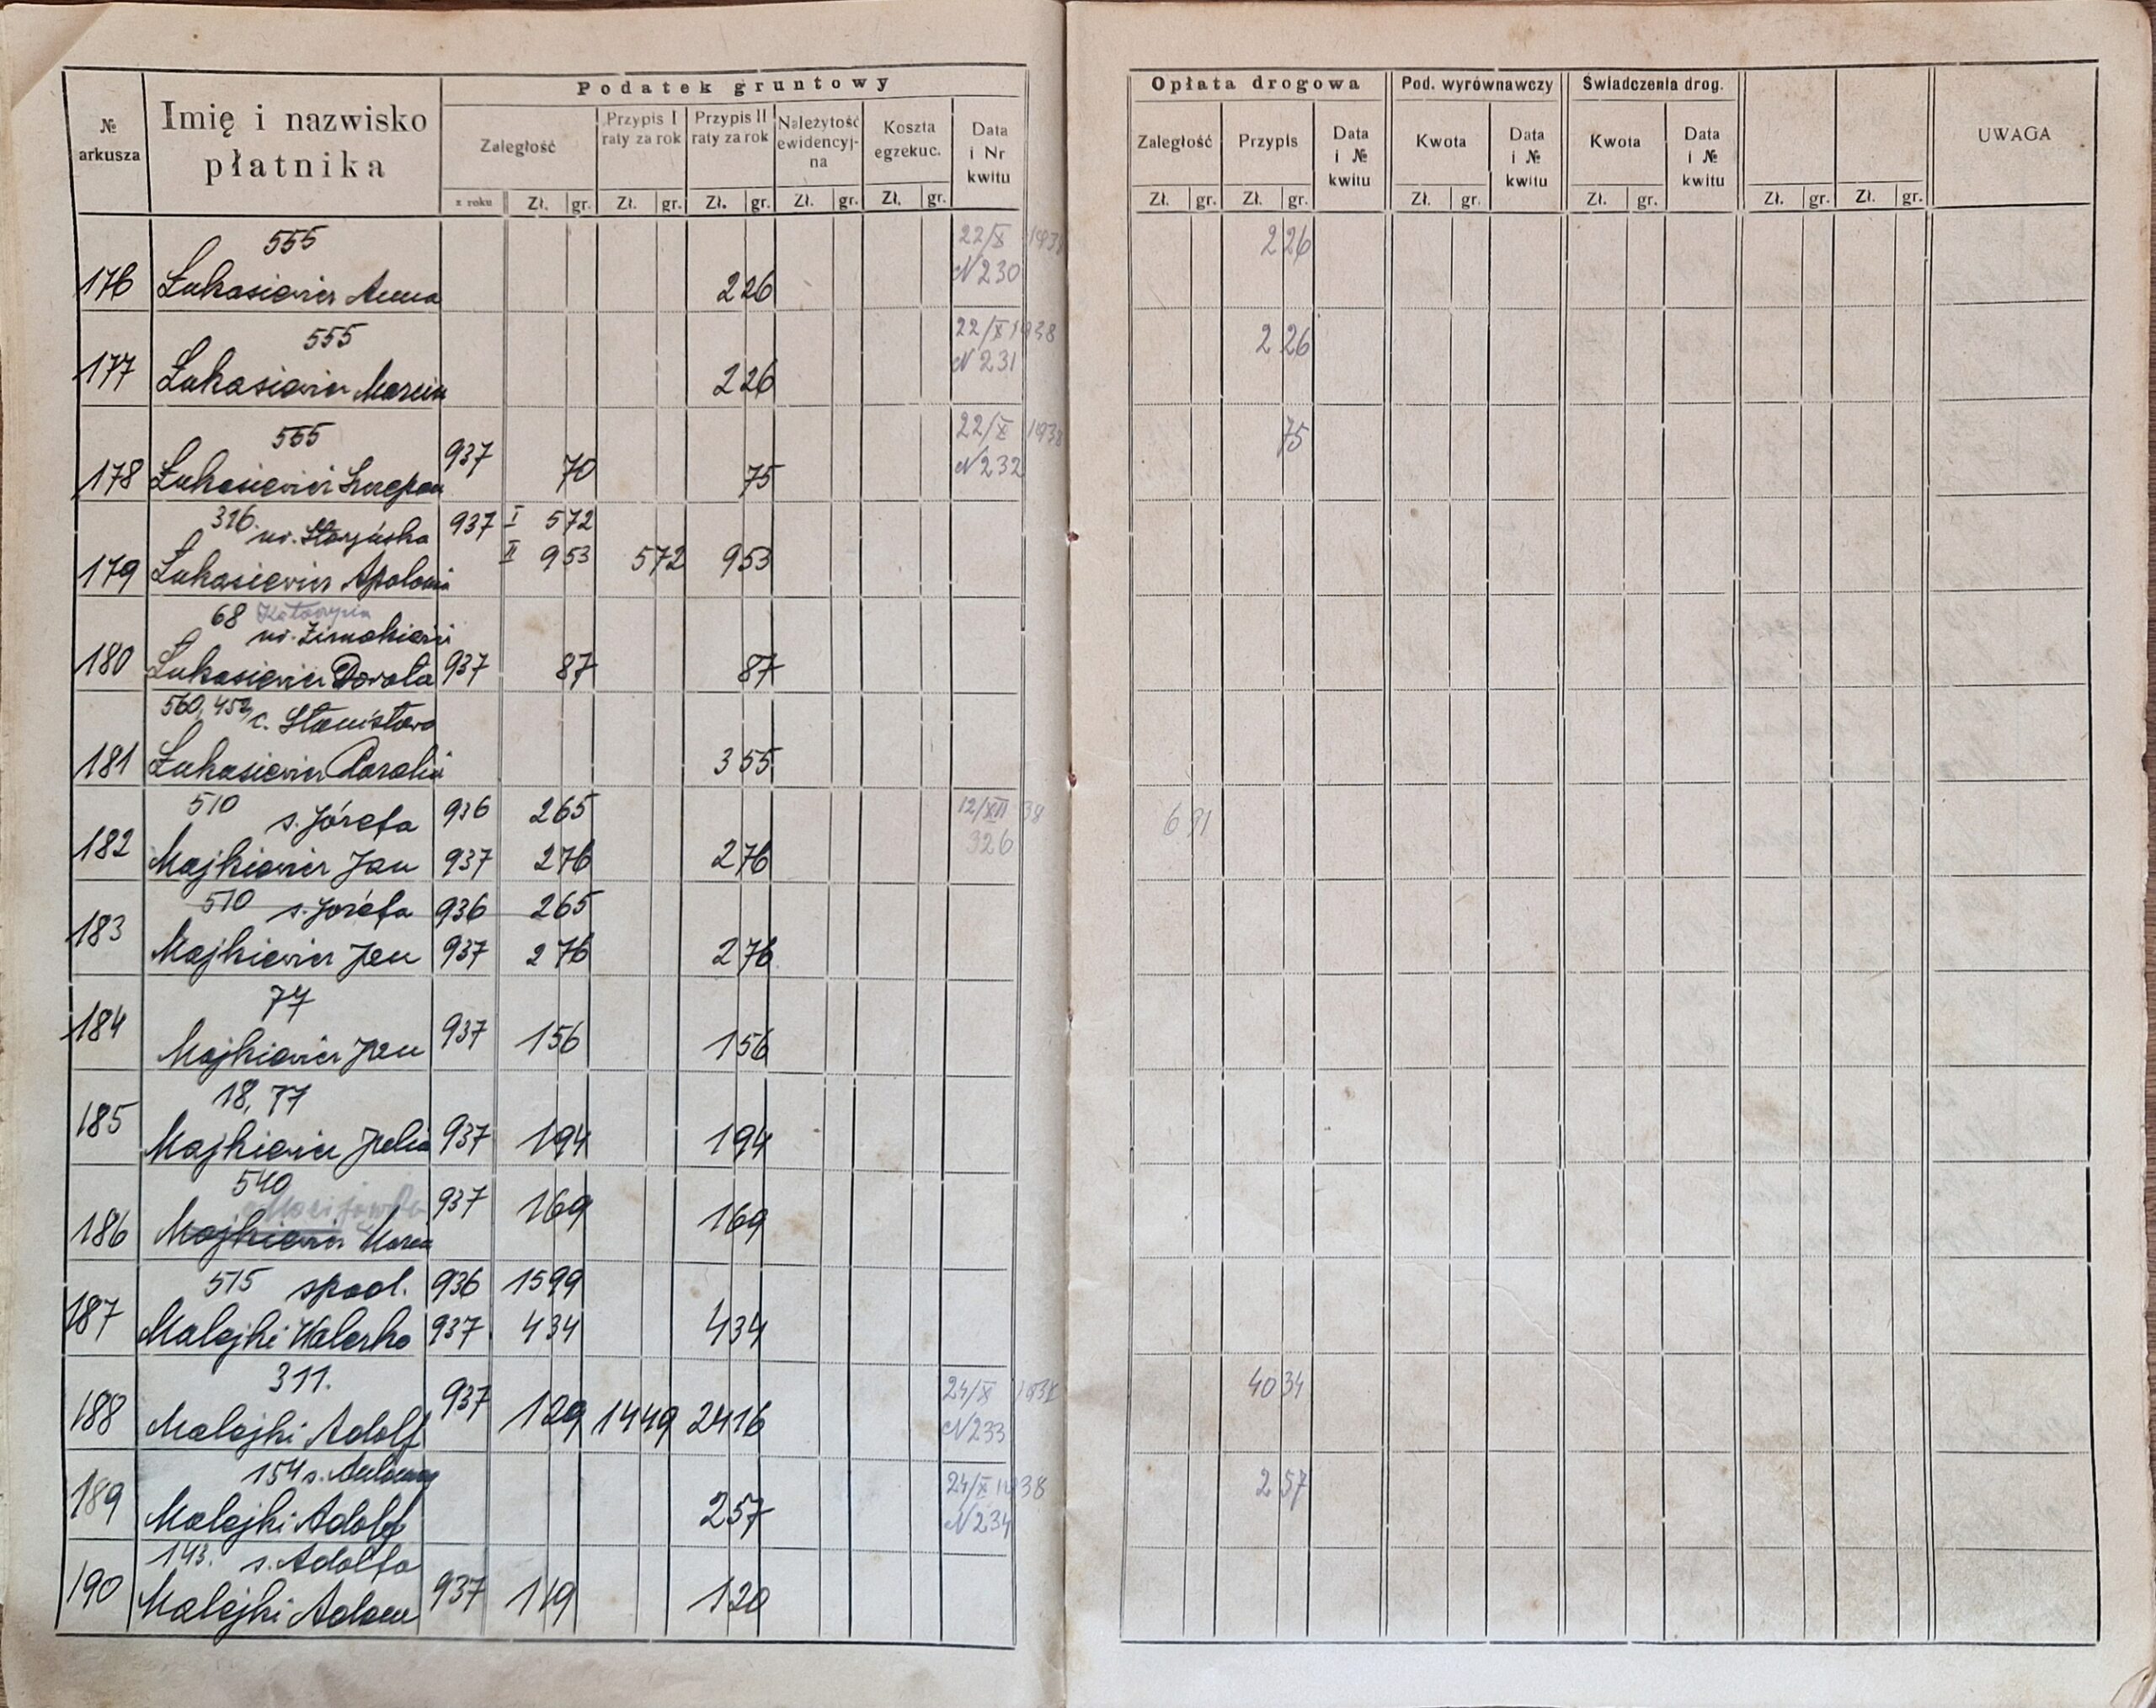 № arkusza
Imię i nazwisko płatnika
Podatek gruntowy
Zaległość
Przypis I raty za rok
Przypis II raty za rok
Należytość ewidencyj-na
Koszta egzekuc.
Data i Nr kwitu
z roku Zł. gr. Zł. gr. Zł. gr. Zł. gr. Zł. gr.
Opłata drogowa
Pod. wyrównawczy
Świadczenia drog.
Zaległość
Przypis
Data i № kwitu
Kwota
Data i № kwitu
Kwota
Data i № kwitu
UWAGA
Zł. gr. Zł. gr. Zł. gr. Zł. gr. Zł. gr. Zł. gr.
555 22/X 1938 2 26
176 Łukasiewicz Anna 2 26 N 230
555 22/X 1938 2 26
177 Łukasiewicz Marcin 2 26 N 231
555 22/X 1938 75
178 Łukasiewicz Szczepan 937 70 75 N 232
326. 937 I 5 72
179 Łukasiewicz Apolonia II 9 53 5 72 9 53
68 Katarzyna
180 Łukasiewicz Dorota 937 87 87
560, 452, c. Stanisława
181 Łukasiewicz Karolina 3 55
510 s. Józefa 936 2 65 12/XII 38 6 91
182 Majkiewicz Jan 937 2 76 2 76 326
510 s. Józefa 936 2 65
183 Majkiewicz Jan 937 2 76 2 76
77
184 Majkiewicz Jan 937 1 56 1 56
18, 77
185 Majkiewicz Julia 937 1 94 1 94
540
186 Majkiewicz Maria 937 1 69 1 69
515 spadl. 936 15 99
187 Malejki Walerka 937 4 34 4 34
311. 24/X 40 34
188 Malejki Adolf 937 1 29 14 49 24 16 N 233
154 s. Antoniny 24/X 1938 2 57
189 Malejki Adolf 2 57 N 234
143. s. Adolfa
190 Malejki Adam 937 1 19 1 20